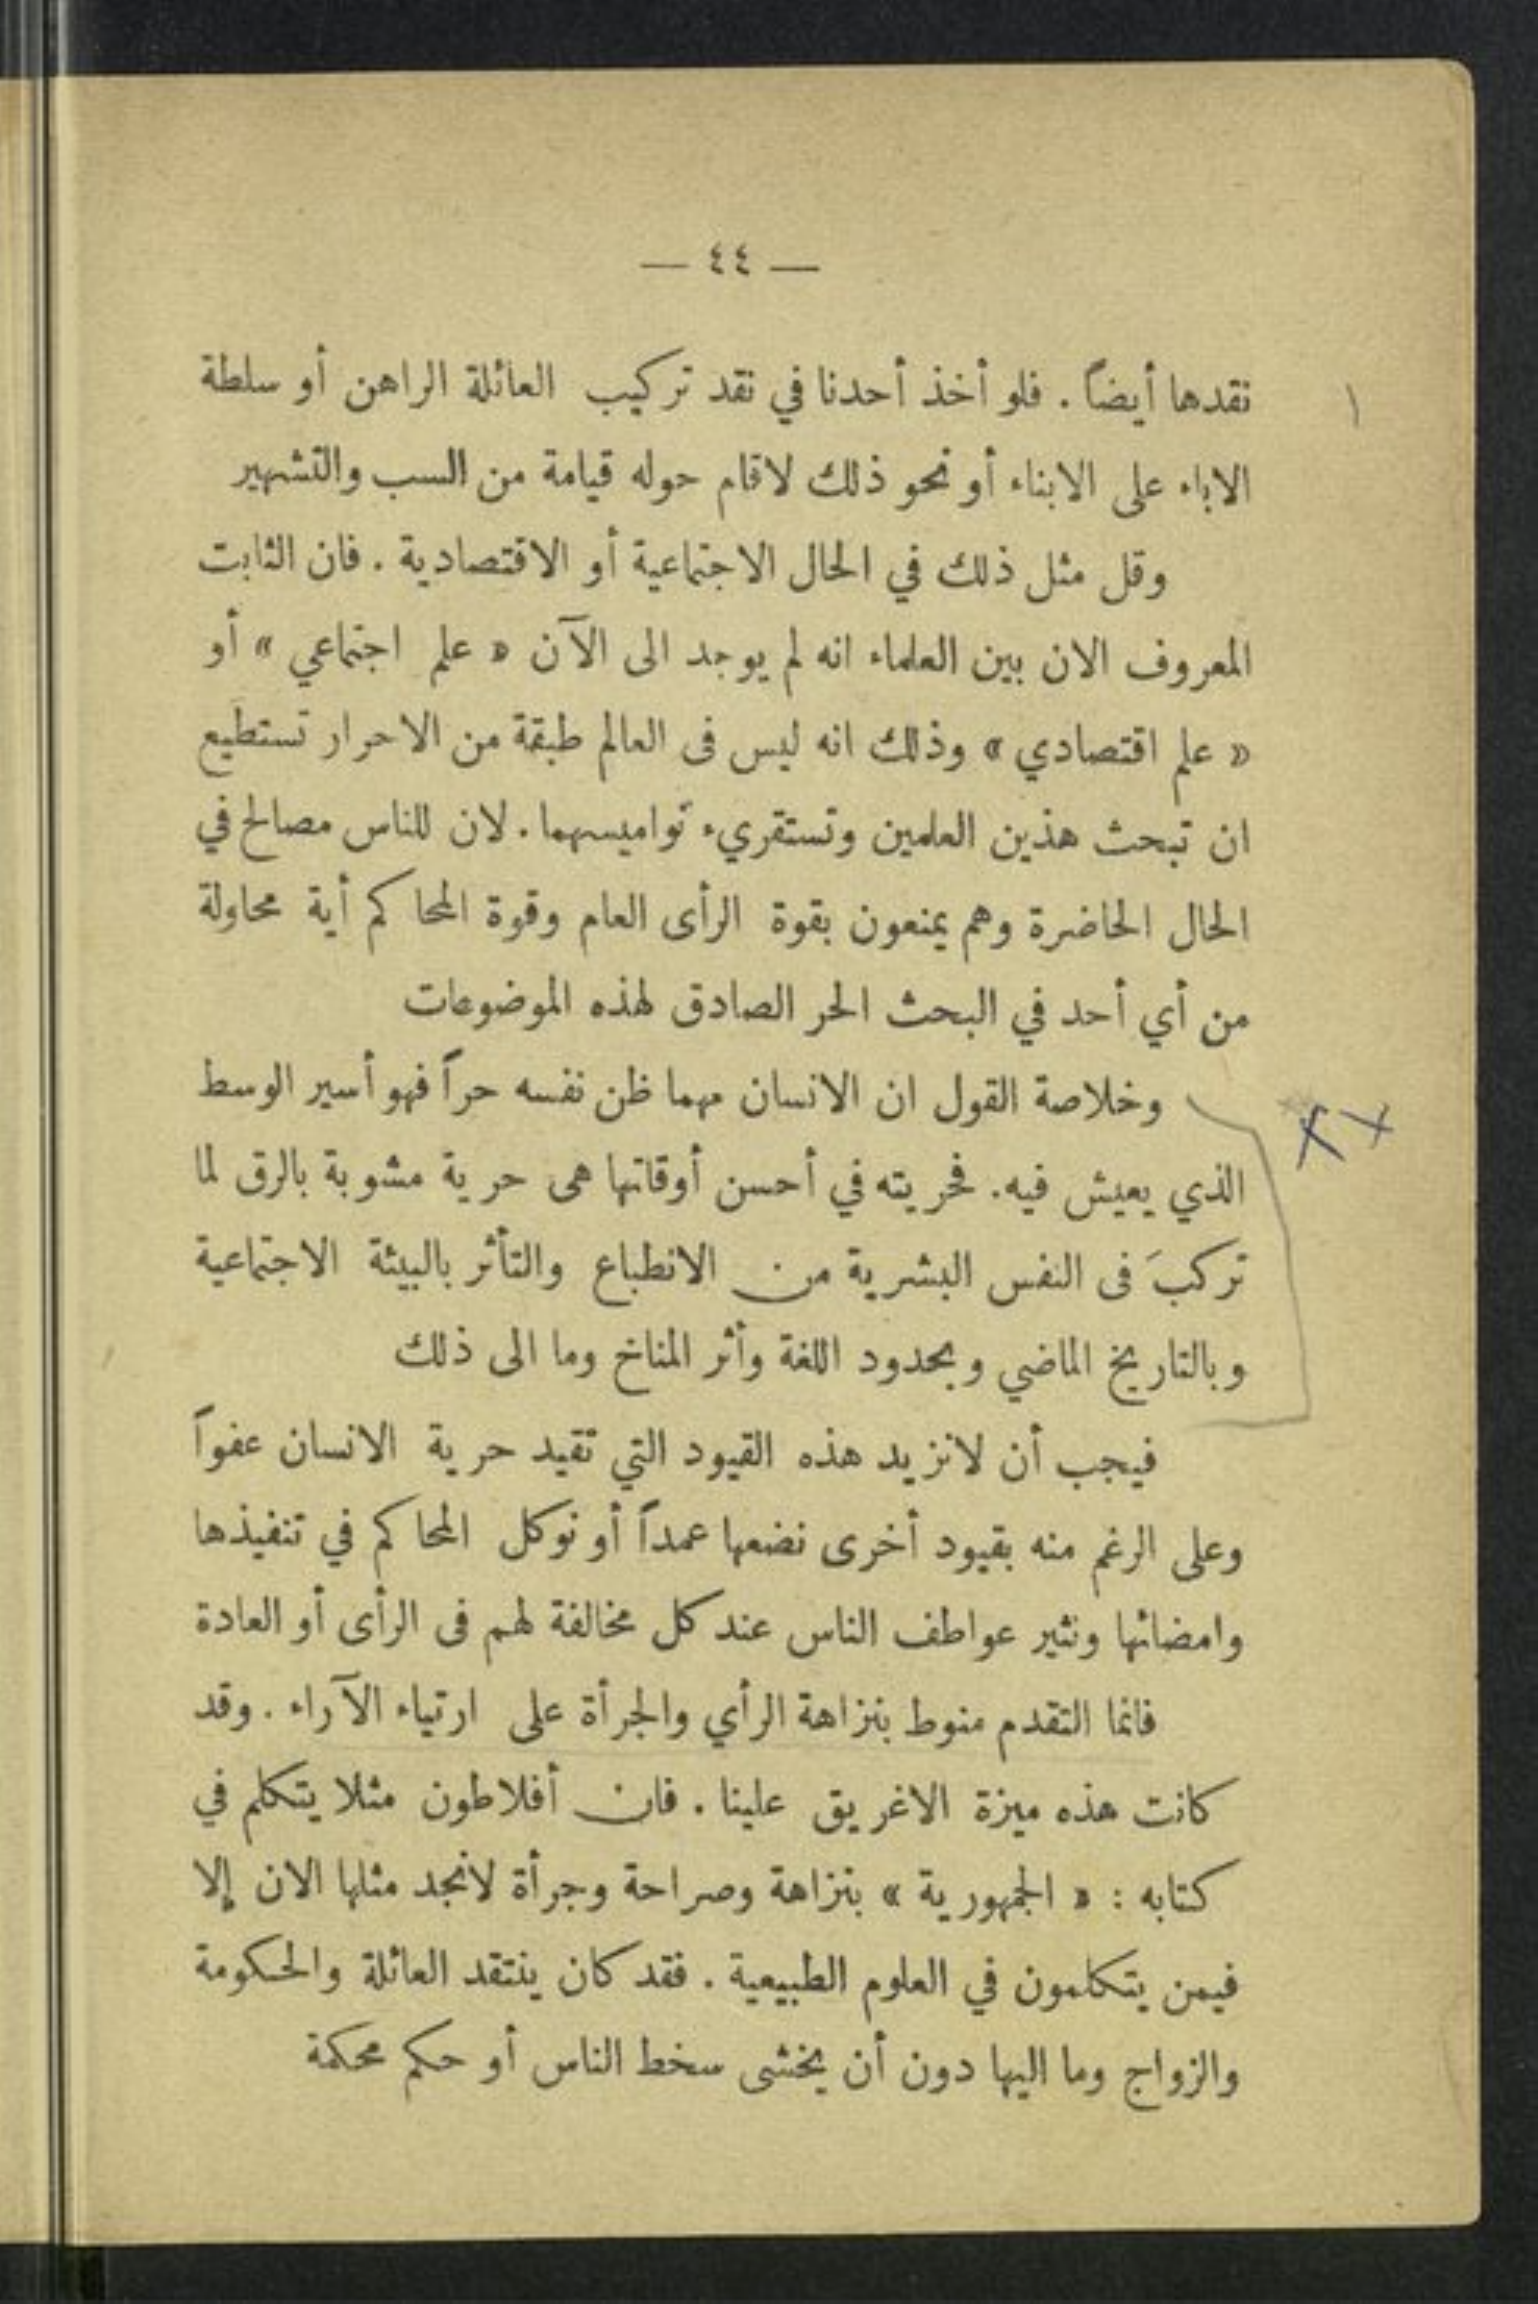 — ٤٤ —
نقدها أيضاً . فلو أخذ أحدنا في نقد تركيب العائلة الراهن أو سلطة
الاباء على الابناء أو نحو ذلك لاقام حوله قيامة من السب والتشهير
وقل مثل ذلك في الحال الاجتماعية أو الاقتصادية . فان الثابت
المعروف الان بين العلماء انه لم يوجد الى الآن « علم اجتماعي » أو
« علم اقتصادي » وذلك انه ليس فى العالم طبقة من الاحرار تستطيع
ان تبحث هذين العلمين وتستقريء نواميسهما . لان للناس مصالح في
الحال الحاضرة وهم يمنعون بقوة الرأى العام وقوة المحاكم أية محاولة
من أي أحد في البحث الحر الصادق لهذه الموضوعات
وخلاصة القول ان الانسان مهما ظن نفسه حراً فهو أسير الوسط
الذي يعيش فيه . فحريته في أحسن أوقاتها هى حرية مشوبة بالرق لما
تركبَ فى النفس البشرية من الانطباع والتأثر بالبيئة الاجتماعية
وبالتاريخ الماضي وبحدود اللغة وأثر المناخ وما الى ذلك
فيجب أن لانزيد هذه القيود التي تقيد حرية الانسان عفواً
وعلى الرغم منه بقيود أخرى نضعها عمداً أو نوكل المحاكم في تنفيذها
وامضائها ونثير عواطف الناس عند كل مخالفة لهم فى الرأى أو العادة
فانما التقدم منوط بنزاهة الرأي والجرأة على ارتياء الآراء . وقد
كانت هذه ميزة الاغريق علينا . فان أفلاطون مثلا يتكلم في
كتابه : « الجمهورية » بنزاهة وصراحة وجرأة لانجد مثلها الان إلا
فيمن يتكلمون في العلوم الطبيعية . فقد كان ينتقد العائلة والحكومة
والزواج وما اليها دون أن يخشى سخط الناس أو حكم محكمة